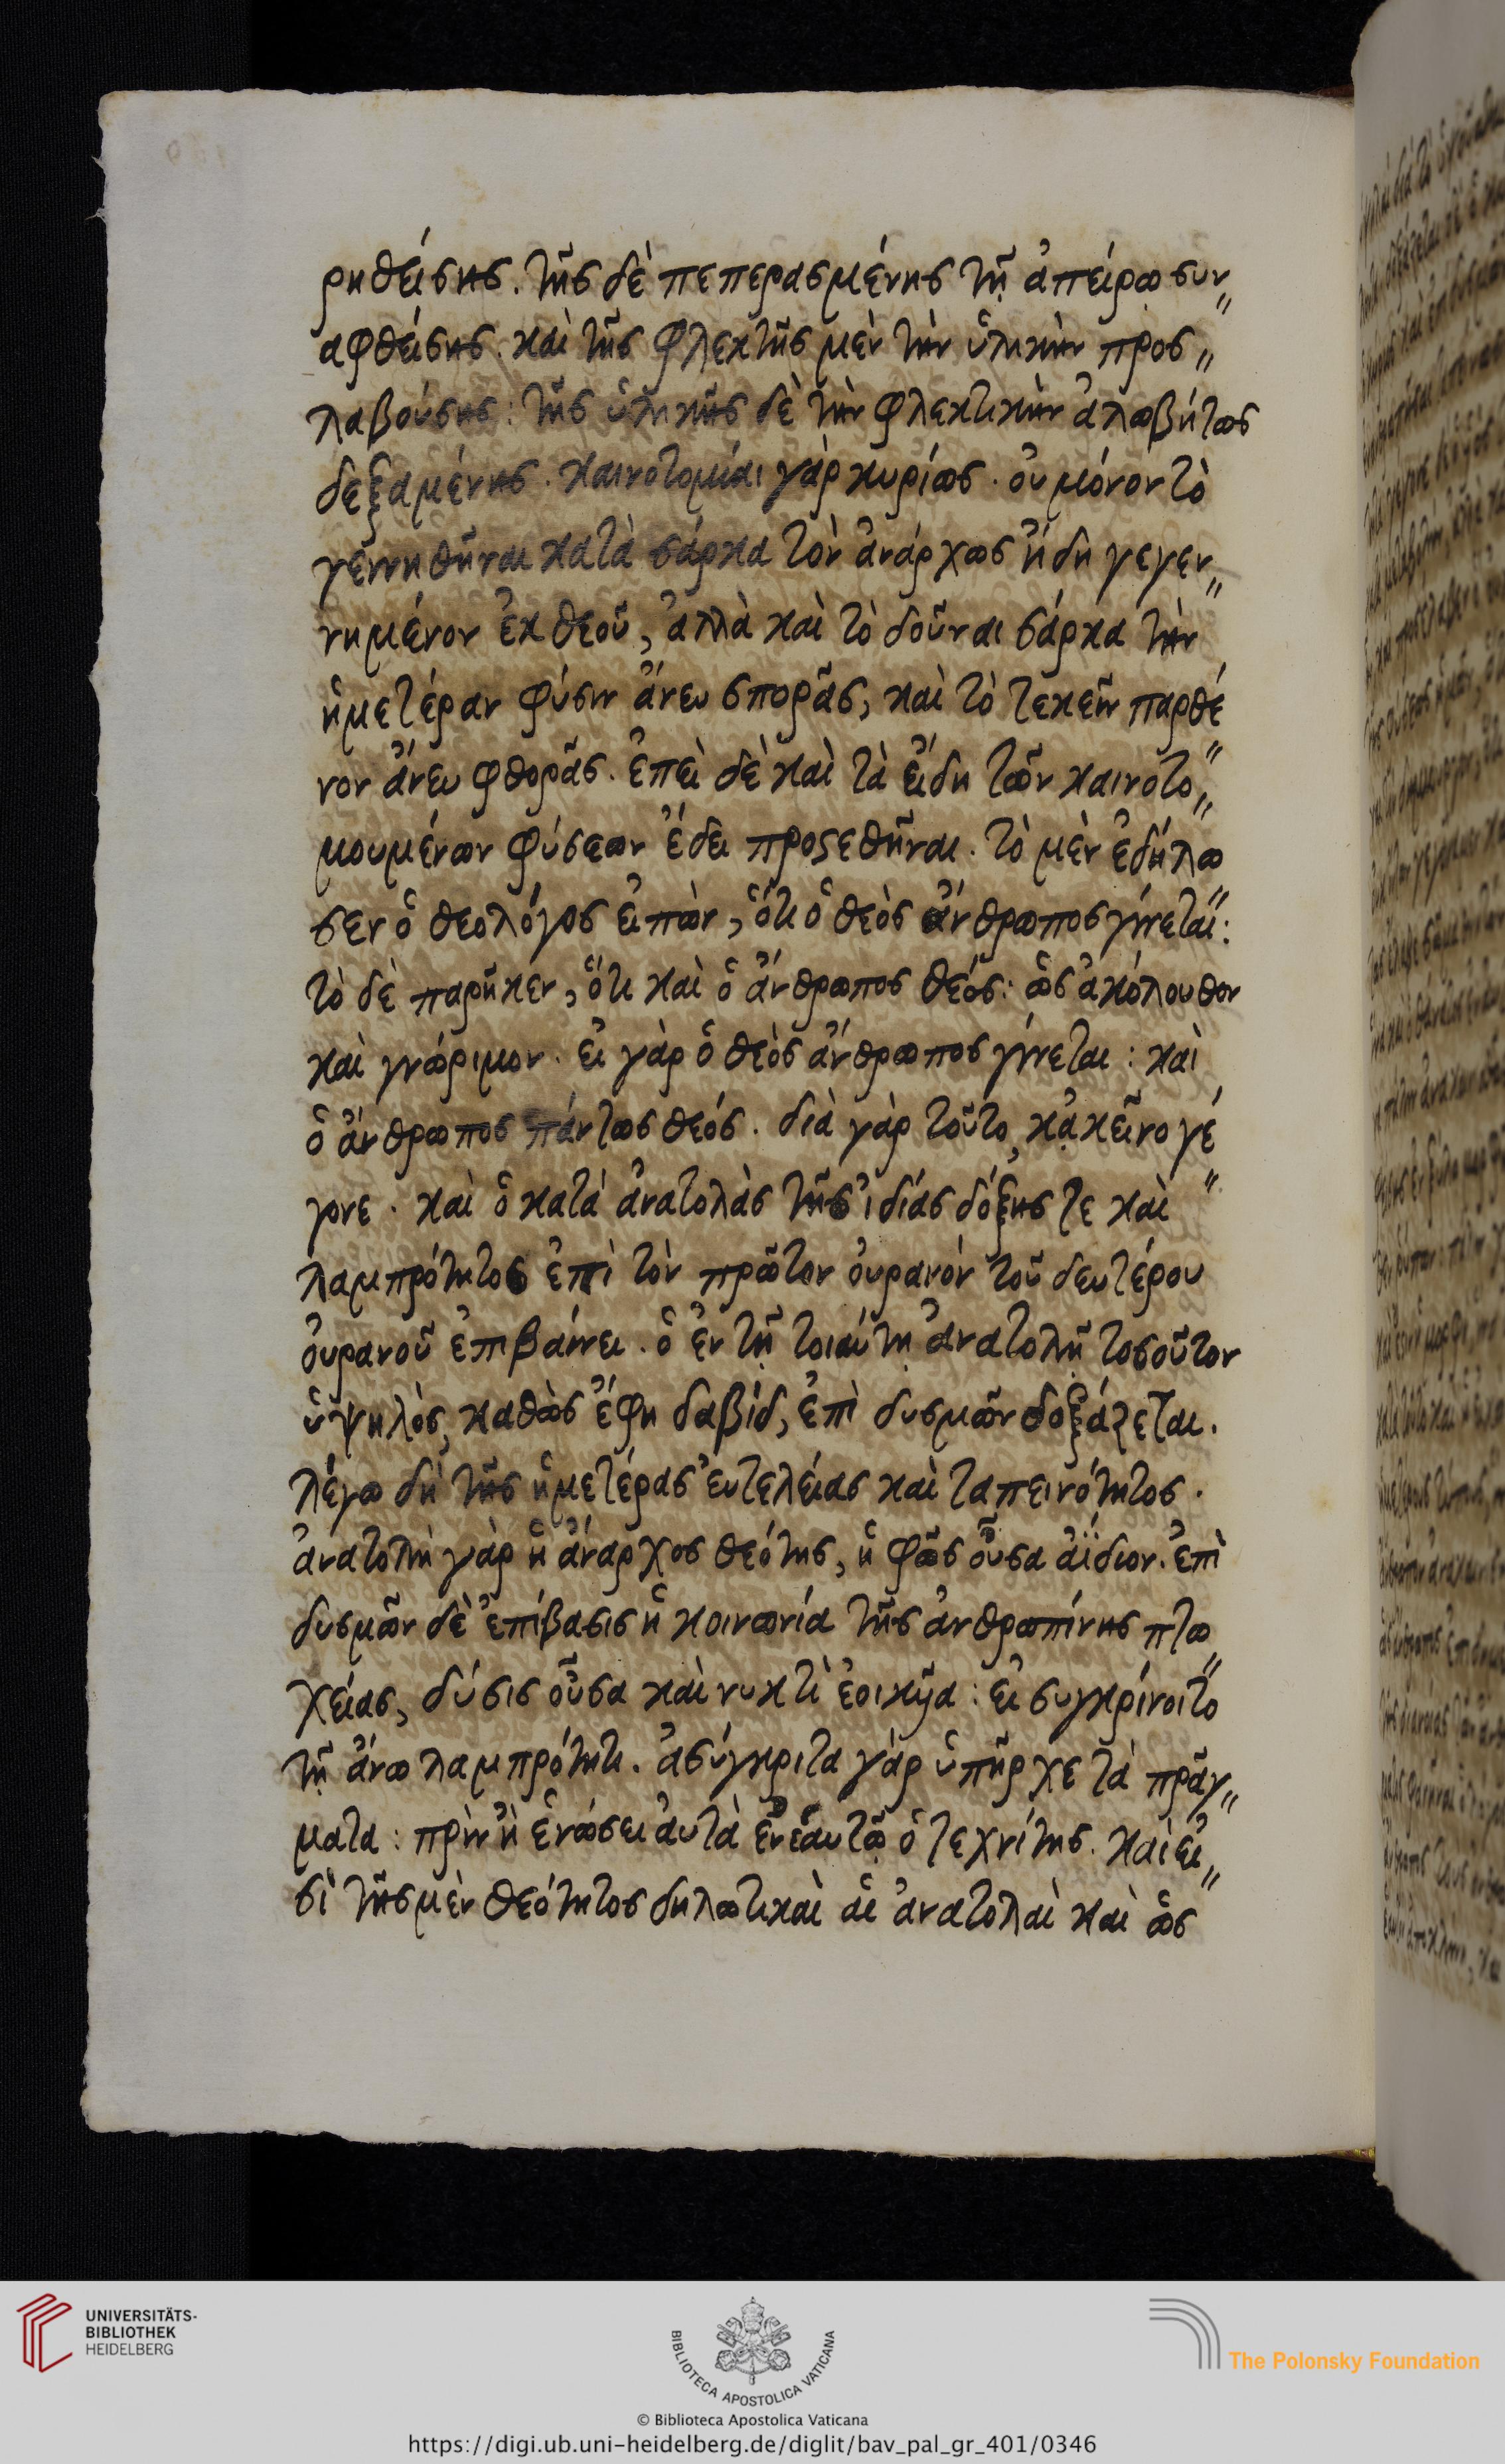 ρηθείσης. τῆς δὲ πεπερασμένης τῇ ἀπείρῳ συν〃
αφθείσης. καὶ τῆς φλεκτῆς μὲν τὴν ὑλικὴν προσ〃
λαβούσης: τῆς ὑλικῆς δὲ τὴν φλεκτικὴν ἀλωβήτως
δεξαμένης. καινοτομίαι γὰρ κυρίως. οὐ μόνον τὸ
γεννηθῆναι κατὰ σάρκα τὸν ἀνάρχως ἤδη γεγεν〃
νημένον ἐκ θεοῦ, ἀλλὰ καὶ τὸ δοῦναι σάρκα τὴν
ἡμετέραν φύσιν ἄνευ σπορᾶς, καὶ τὸ τεκεῖν παρθέ〃
νον ἄνευ φθορᾶς. ἐπεὶ δὲ καὶ τὰ εἴδη τῶν καινοτο〃
μουμένων φύσεων ἔδει προςεθῆναι. τὸ μὲν ἐδήλω〃
σεν ὁ θεολόγος εἰπὼν, ὅτι ὁ θεὸς ἄνθρωπος γίνεται:
τὸ δὲ παρῆκεν, ὅτι καὶ ὁ ἄνθρωπος θεός: ὡς ἀκόλουθον
καὶ γνώριμον. εἰ γὰρ ὁ θεὸς ἄνθρωπος γίνεται: καὶ
ὁ ἄνθρωπος πάντως θεός. διὰ γὰρ τοῦτο, κἀκεῖνο γέ〃
γονε. καὶ ὁ κατὰ ἀνατολὰς τῆς ἰδίας δόξης τε καὶ
λαμπρότητος ἐπὶ τὸν πρῶτον οὐρανὸν τοῦ δευτέρου
οὐρανοῦ ἐπιβαίνει. ὁ ἐν τῇ τοιαύτῃ ἀνατολῇ τοσοῦτον
ὑψηλὸς, καθὼς ἔφη δαβίδ, ἐπὶ δυσμῶν δοξάζεται.
λέγω δὴ τῆς ἡμετέρας εὐτελείας καὶ ταπεινότητος.
ἀνατολὴ γὰρ ἡ ἄναρχος θεότης, ἡ φῶς οὖσα ἀΐδιον. ἐπὶ
δυσμῶν δὲ ἐπίβασις ἡ κοινωνία τῆς ἀνθρωπίνης πτω〃
χείας, δύσις οὖσα καὶ νυκτὶ ἐοικῦια: εἰ συγκρίνοιτο
τῇ ἄνω λαμπρότητι. ἀσύγκριτα γὰρ ὑπῆρχε τὰ πράγ〃
ματα: πρὶν ἢ ἑνώσει αὐτὰ ἐν ἑαυτῷ ὁ τεχνίτης. καὶ εἰ〃
σὶ τῆς μὲν θεότητος δηλωτικαὶ αἱ ἀνατολαὶ καὶ ὡς
UNIVERSITÄTS-
BIBLIOTHEK
HEIDELBERG
BIBLIOTECA APOSTOLICA VATICANA
The Polonsky Foundation
© Biblioteca Apostolica Vaticana
https://digi.ub.uni-heidelberg.de/diglit/bav_pal_gr_401/0346